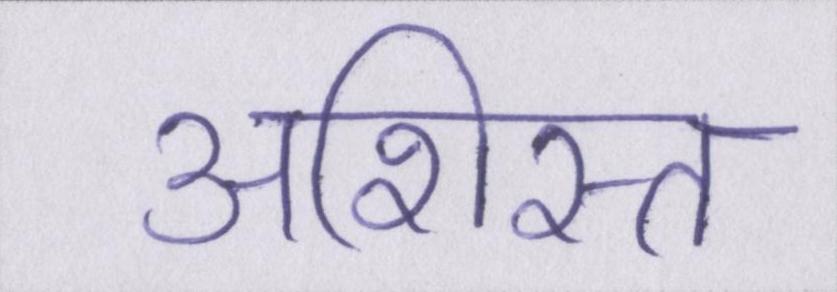 अशिस्त